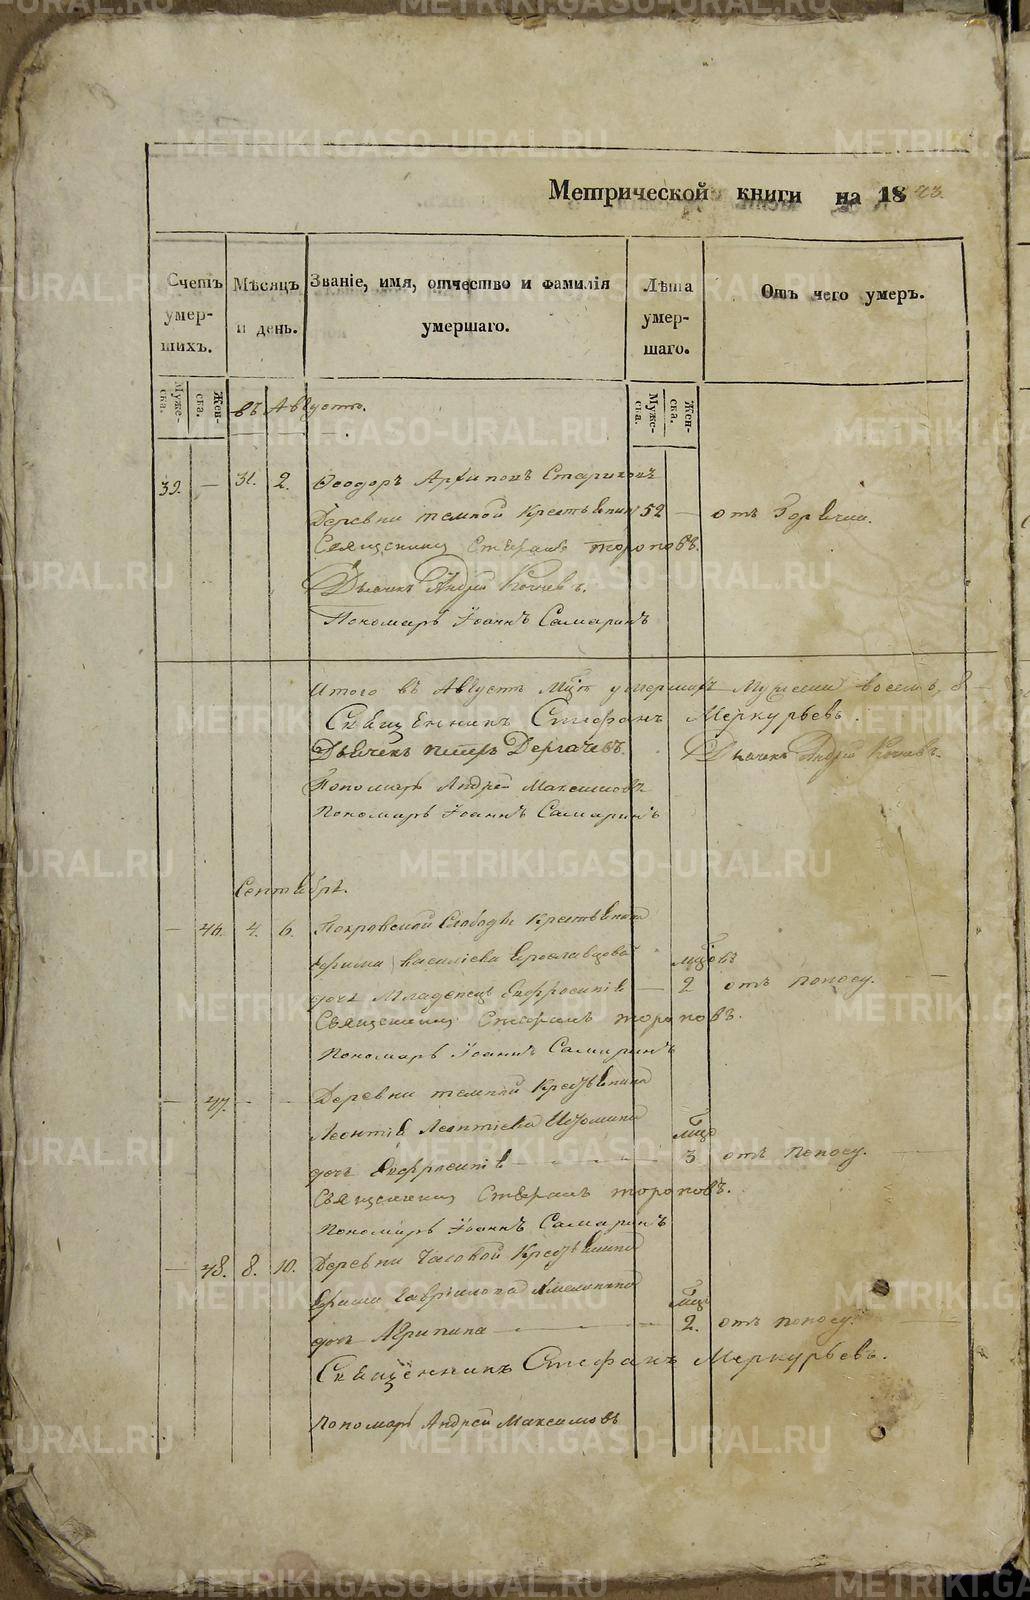 Метрической книги на 1823.
Счетъ умершихъ.
Мѣсяцъ и день.
Званіе, имя, отчество и фамилія умершаго.
Лѣта умершаго.
Отъ чего умеръ.
Мужеска.
Женска.
Мужеска.
Женска.
въ Августѣ.
39. — 31. 2. Ѳеодоръ Архиповъ Стариковъ
Деревни темной Крестьянинъ 52 — отъ Горячки.
Священникъ Стефанъ Тороповъ.
Дьячекъ Андрей Кочневъ.
Пономарь Іоаннъ Самаринъ
Итого въ Августѣ Мцѣ умершихъ Мужеска восемь, 8
Священникъ Стефанъ Меркурьевъ.
Дьячекъ петръ Дергачевъ. Дьячекъ Андрей Кочневъ.
Пономарь Андрей Максимовъ
Пономарь Іоаннъ Самаринъ
Сентябрь.
— 46. 4. 6. Покровской Слободы Крестьянина
Ефима Василіева Ярославцова мцовъ
дочь Младенецъ Евфросинія — 2 отъ поносу.
Священникъ Стефанъ тороповъ.
Пономарь Іоаннъ Самаринъ
— 47. — — Деревни темной Крестьянина
Леонтія Леонтіева Изомина мцо
дочь Евфросинія — 3 отъ поносу.
Священникъ Стефанъ тороповъ.
Пономарь Іоаннъ Самаринъ
— 48. 8. 10. Деревни Часовой Крестьянина
Ефима Гавриилова мцо
дочь Агрипина — 2. отъ поносу.
Священникъ Стефанъ Меркурьевъ.
Пономарь Андрей Максимовъ
METRIKI.GASO-URAL.RU